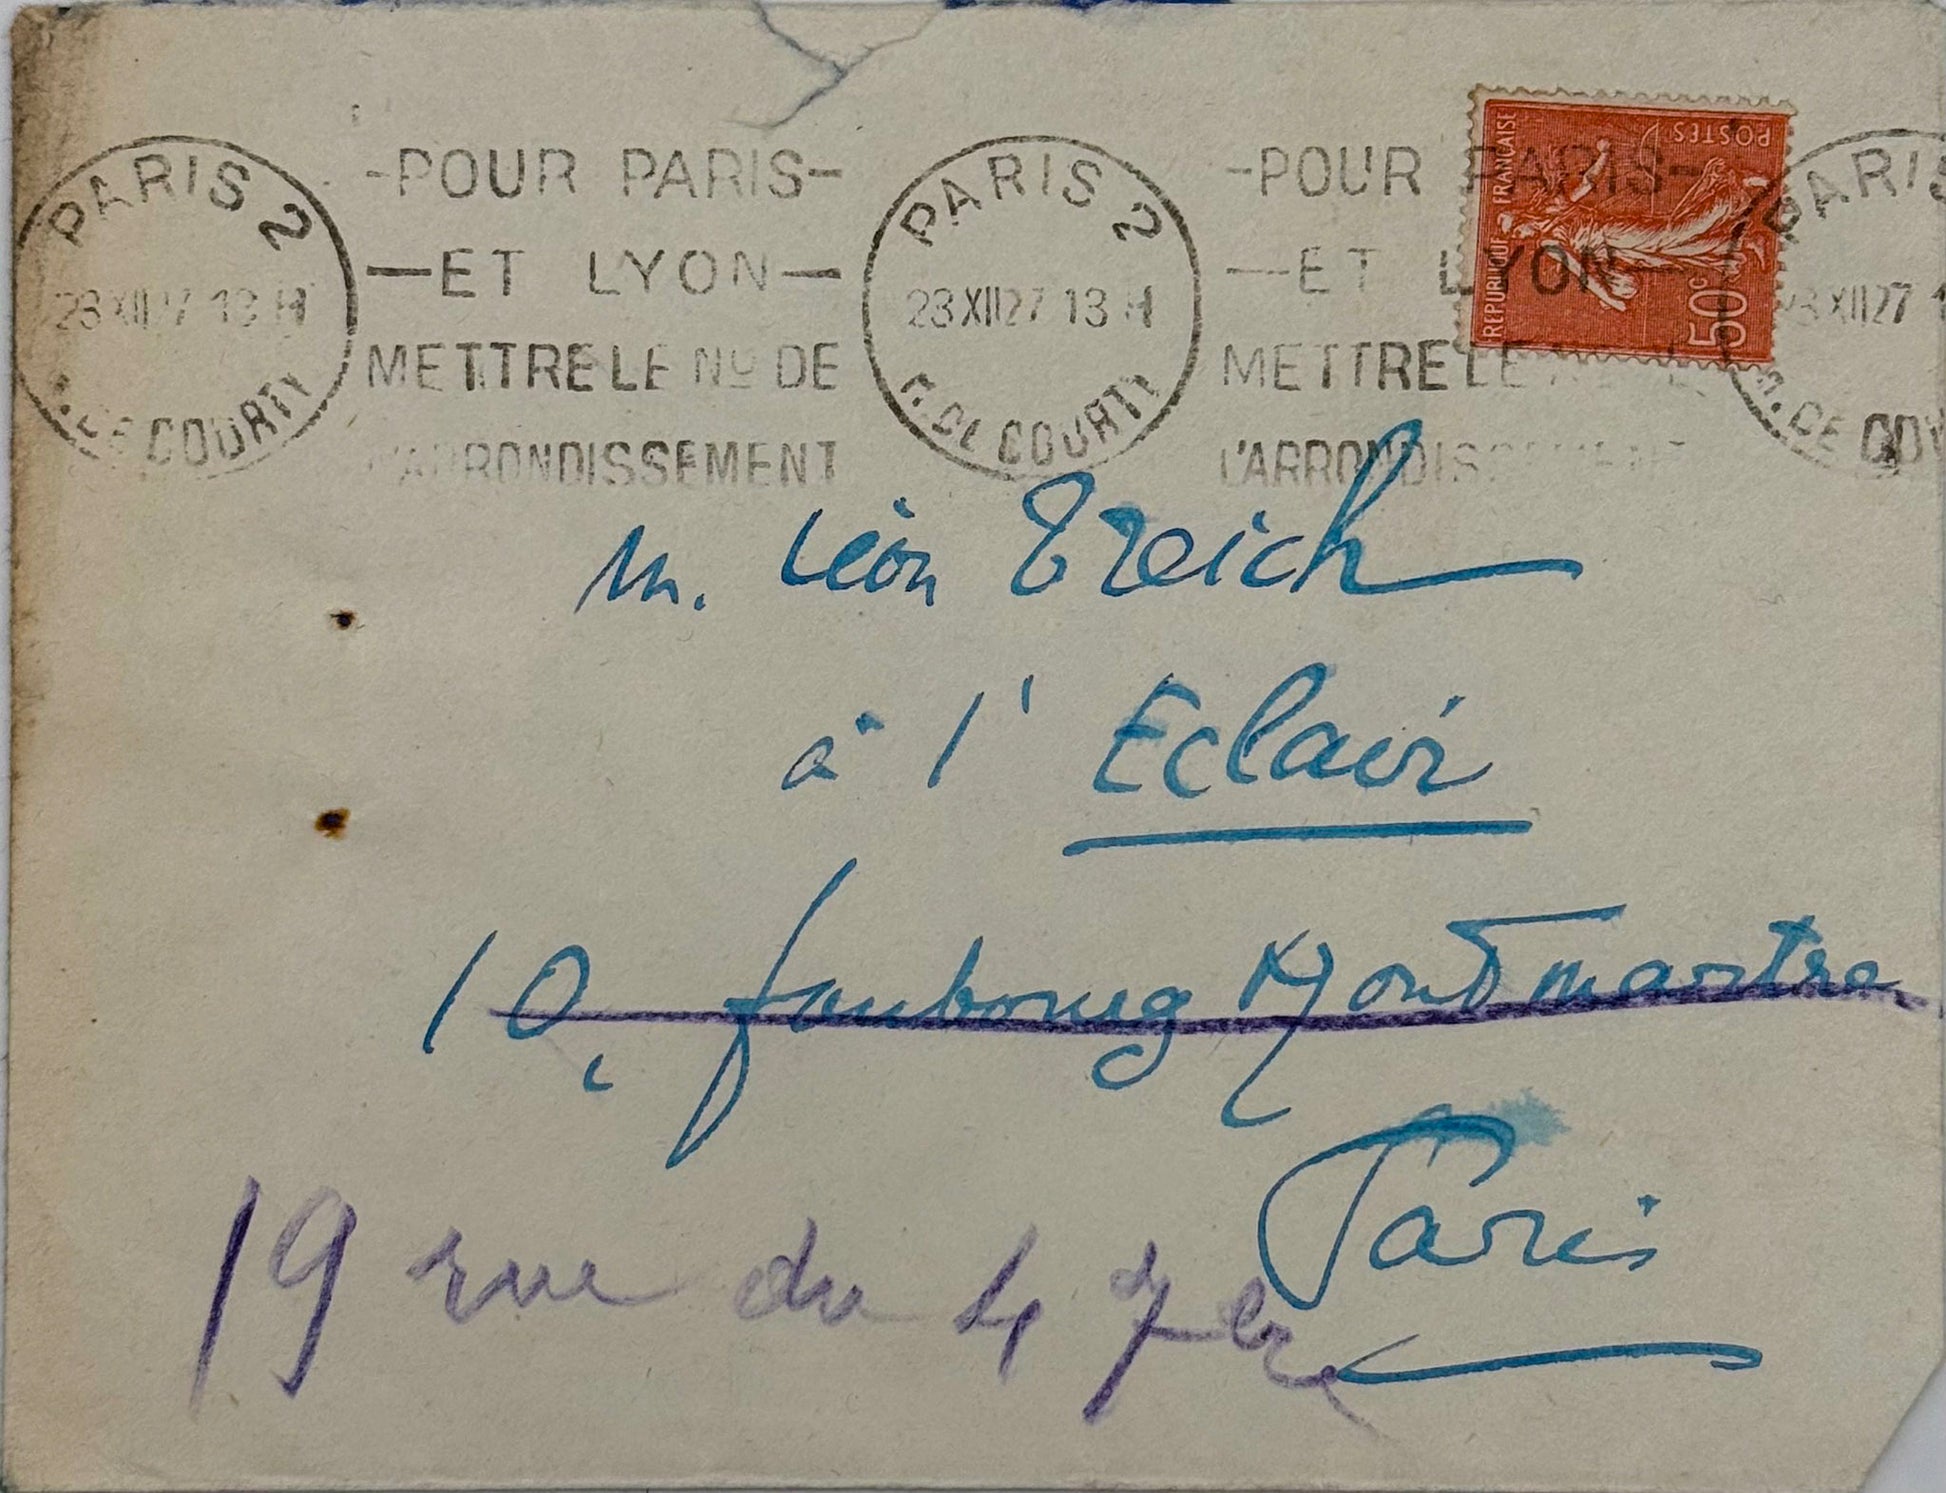 PARIS 2
23 XII 27 13 H
R. DE COURTY
-POUR PARIS-
—ET LYON—
METTRE LE No DE
L'ARRONDISSEMENT
PARIS 2
23 XII 27 13 H
R. DE COURTY
-POUR PARIS-
—ET LYON—
METTRE LE
L'ARRONDISSEMENT
REPUBLIQUE FRANÇAISE
POSTES
50c
PARIS
XII 27 1
R. DE COU
M. Léon Treich
à l'Eclair
10, faubourg Montmartre
Paris
19 rue du 4 7bre